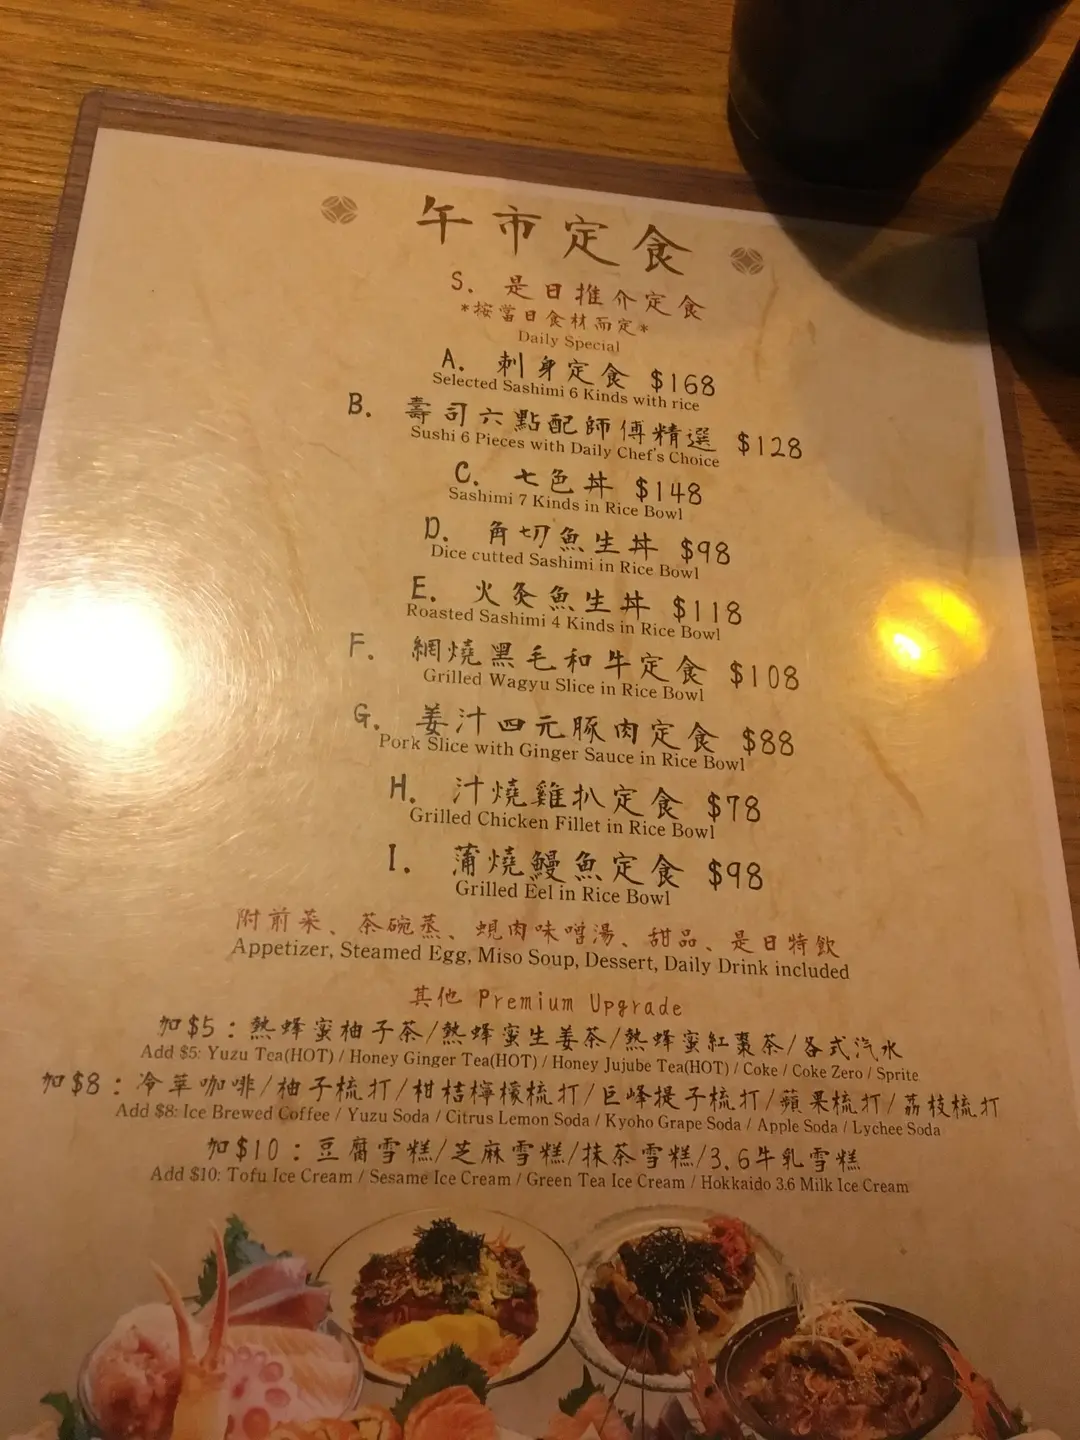 午市定食
S. 是日推介定食
*按當日食材而定*
Daily Special
A. 刺身定食 $168
Selected Sashimi 6 Kinds with rice
B. 壽司六點配師傅精選 $128
Sushi 6 Pieces with Daily Chef's Choice
C. 七色丼 $148
Sashimi 7 Kinds in Rice Bowl
D. 角切魚生丼 $98
Dice cutted Sashimi in Rice Bowl
E. 火灸魚生丼 $118
Roasted Sashimi 4 Kinds in Rice Bowl
F. 網燒黑毛和牛定食 $108
Grilled Wagyu Slice in Rice Bowl
G. 姜汁四元豚肉定食 $88
Pork Slice with Ginger Sauce in Rice Bowl
H. 汁燒雞扒定食 $78
Grilled Chicken Fillet in Rice Bowl
I. 蒲燒鰻魚定食 $98
Grilled Eel in Rice Bowl
附前菜、茶碗蒸、蜆肉味噌湯、甜品、是日特飲
Appetizer, Steamed Egg, Miso Soup, Dessert, Daily Drink included
其他 Premium Upgrade
加$5：熱蜂蜜柚子茶/熱蜂蜜生姜茶/熱蜂蜜紅棗茶/各式汽水
Add $5: Yuzu Tea(HOT) / Honey Ginger Tea(HOT) / Honey Jujube Tea(HOT) / Coke / Coke Zero / Sprite
加$8：冷萃咖啡/柚子梳打/柑桔檸檬梳打/巨峰提子梳打/蘋果梳打/荔枝梳打
Add $8: Ice Brewed Coffee / Yuzu Soda / Citrus Lemon Soda / Kyoho Grape Soda / Apple Soda / Lychee Soda
加$10：豆腐雪糕/芝麻雪糕/抹茶雪糕/3.6牛乳雪糕
Add $10: Tofu Ice Cream / Sesame Ice Cream / Green Tea Ice Cream / Hokkaido 3.6 Milk Ice Cream